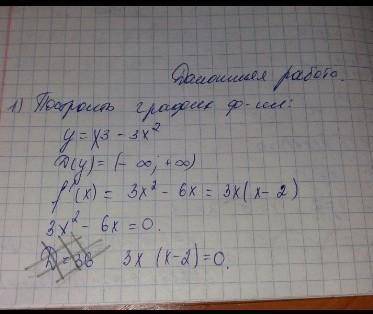 Домашняя работа.
1) Построить график ф-ии:
y = x3 - 3x²
D(y) = (-∞; +∞)
f'(x) = 3x² - 6x = 3x(x-2)
3x² - 6x = 0.
D = 36 3x (x-2)=0.